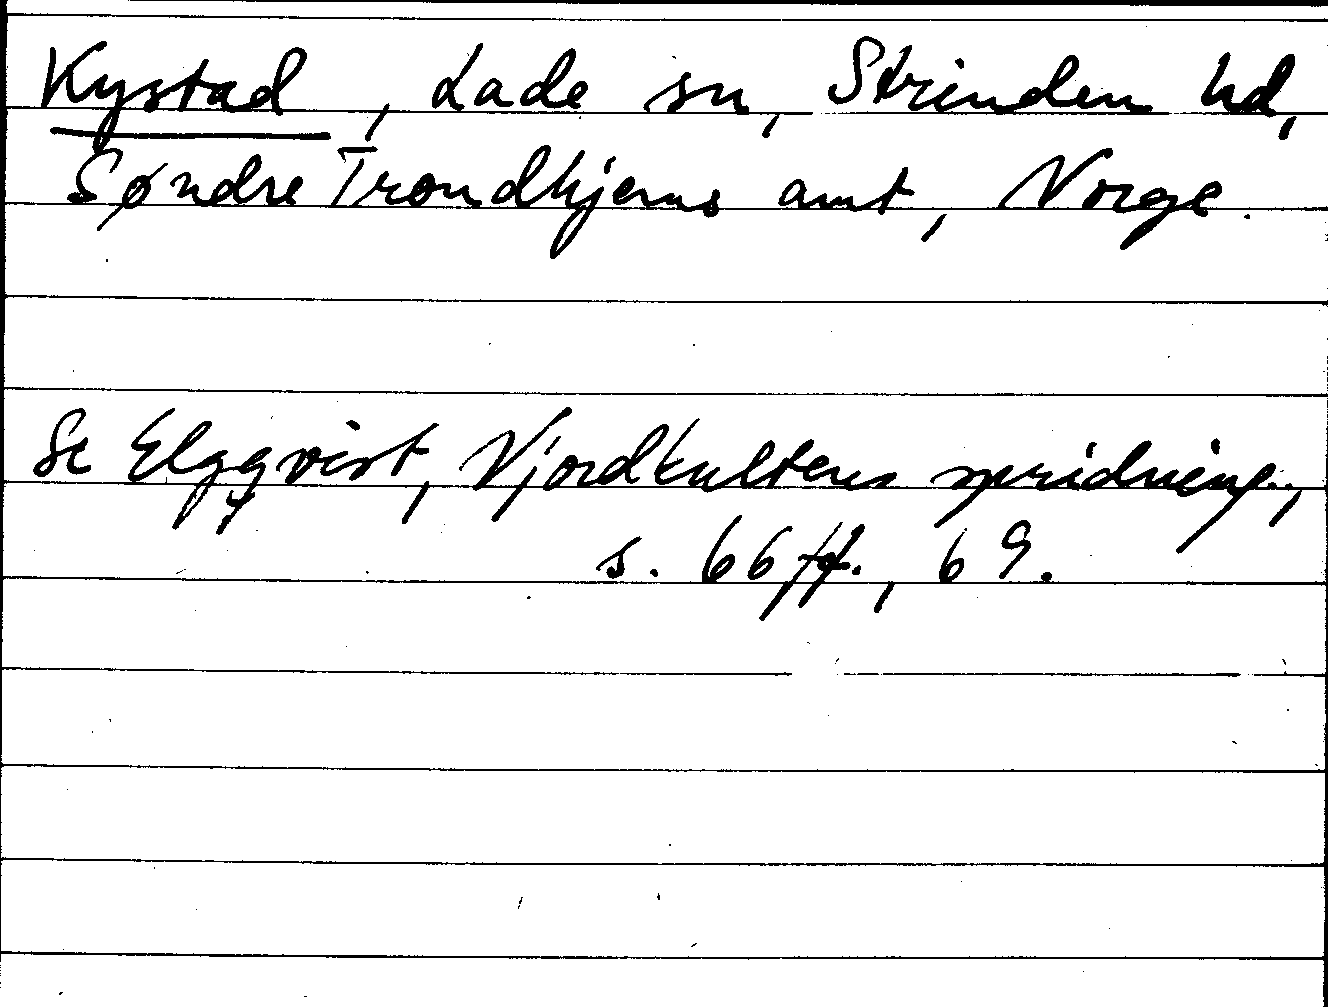 Kystad, Lade sn, Strinden hd,
Søndre Trondhjems amt, Norge.
Se Elgqvist, Njordkultens spridning,
s. 66 ff., 69.